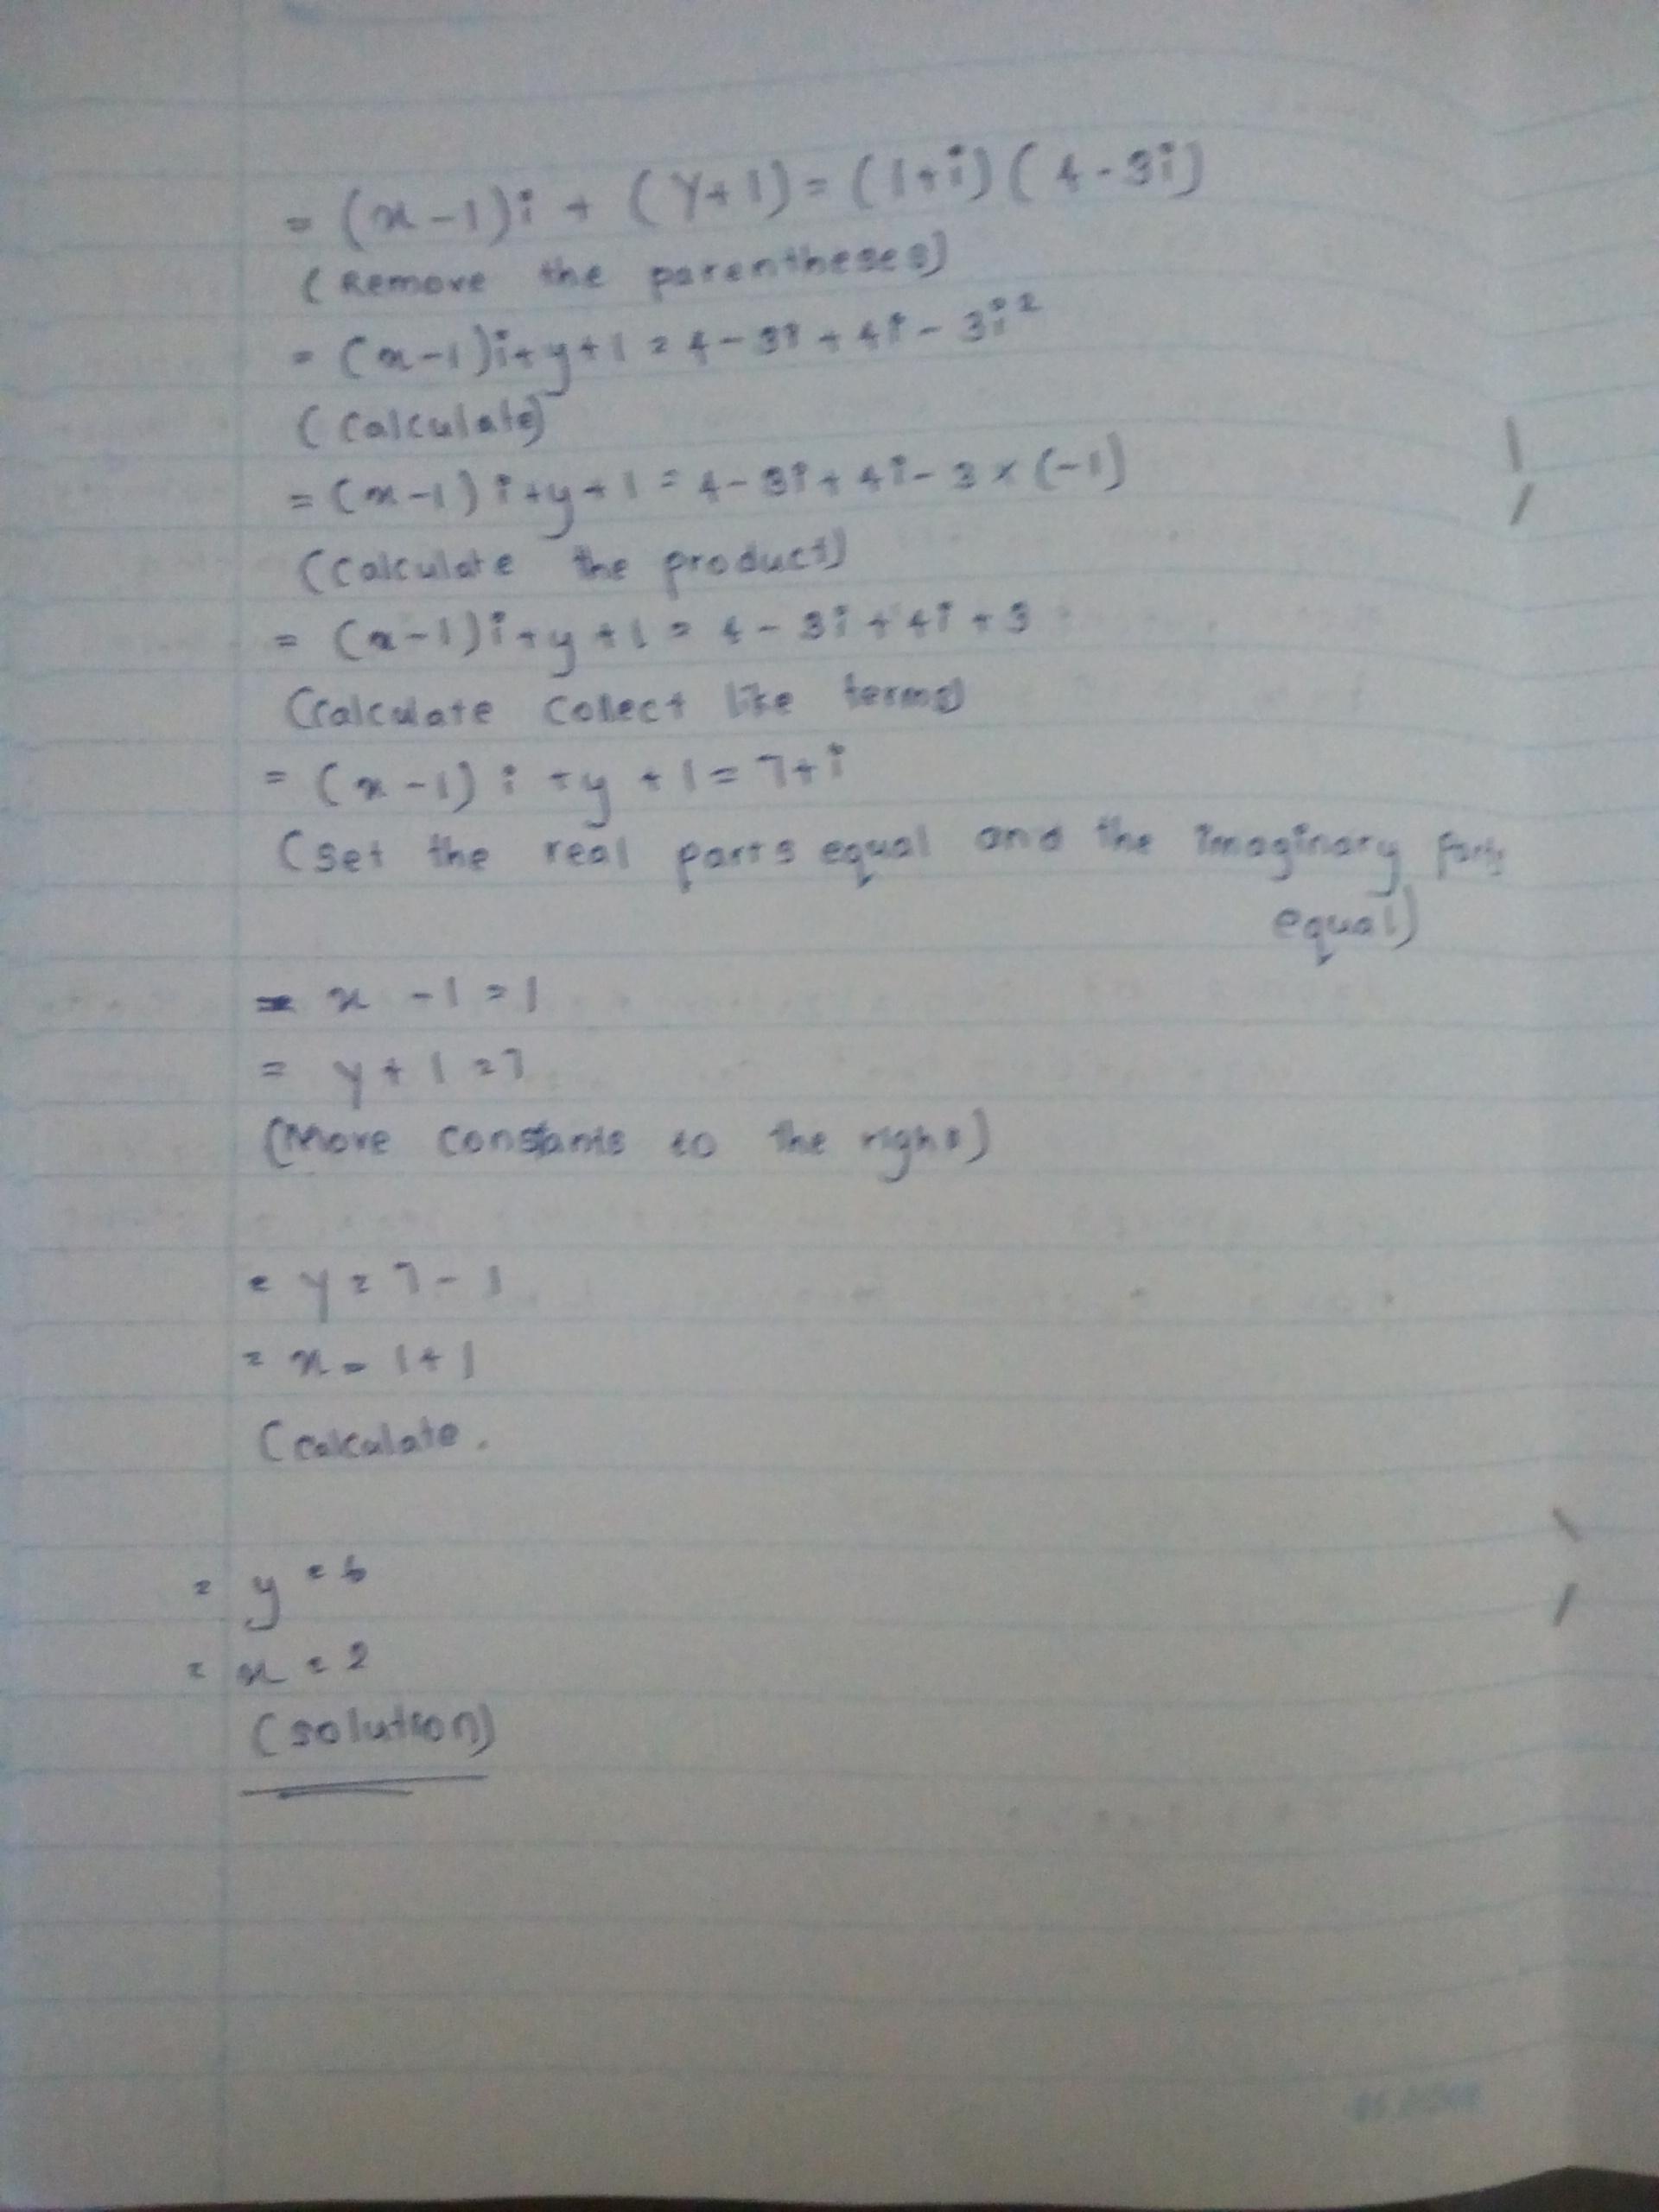 = (x-1)i + (y+1) = (1+i)(4-3i)
(Remove the parentheses)
= (x-1)i+y+1 = 4-3i+4i-3i²
(Calculate)
= (x-1)i+y+1 = 4-3i+4i-3×(-1)
(Calculate the product)
= (x-1)i+y+1 = 4-3i+4i+3
(Calculate collect like terms)
= (x-1)i+y+1=7+i
(set the real parts equal and the imaginary parts
equal)
= x-1=1
= y+1=7
(Move constants to the right)
= y=7-1
= x=1+1
(calculate.
= y=6
= x=2
(solution)